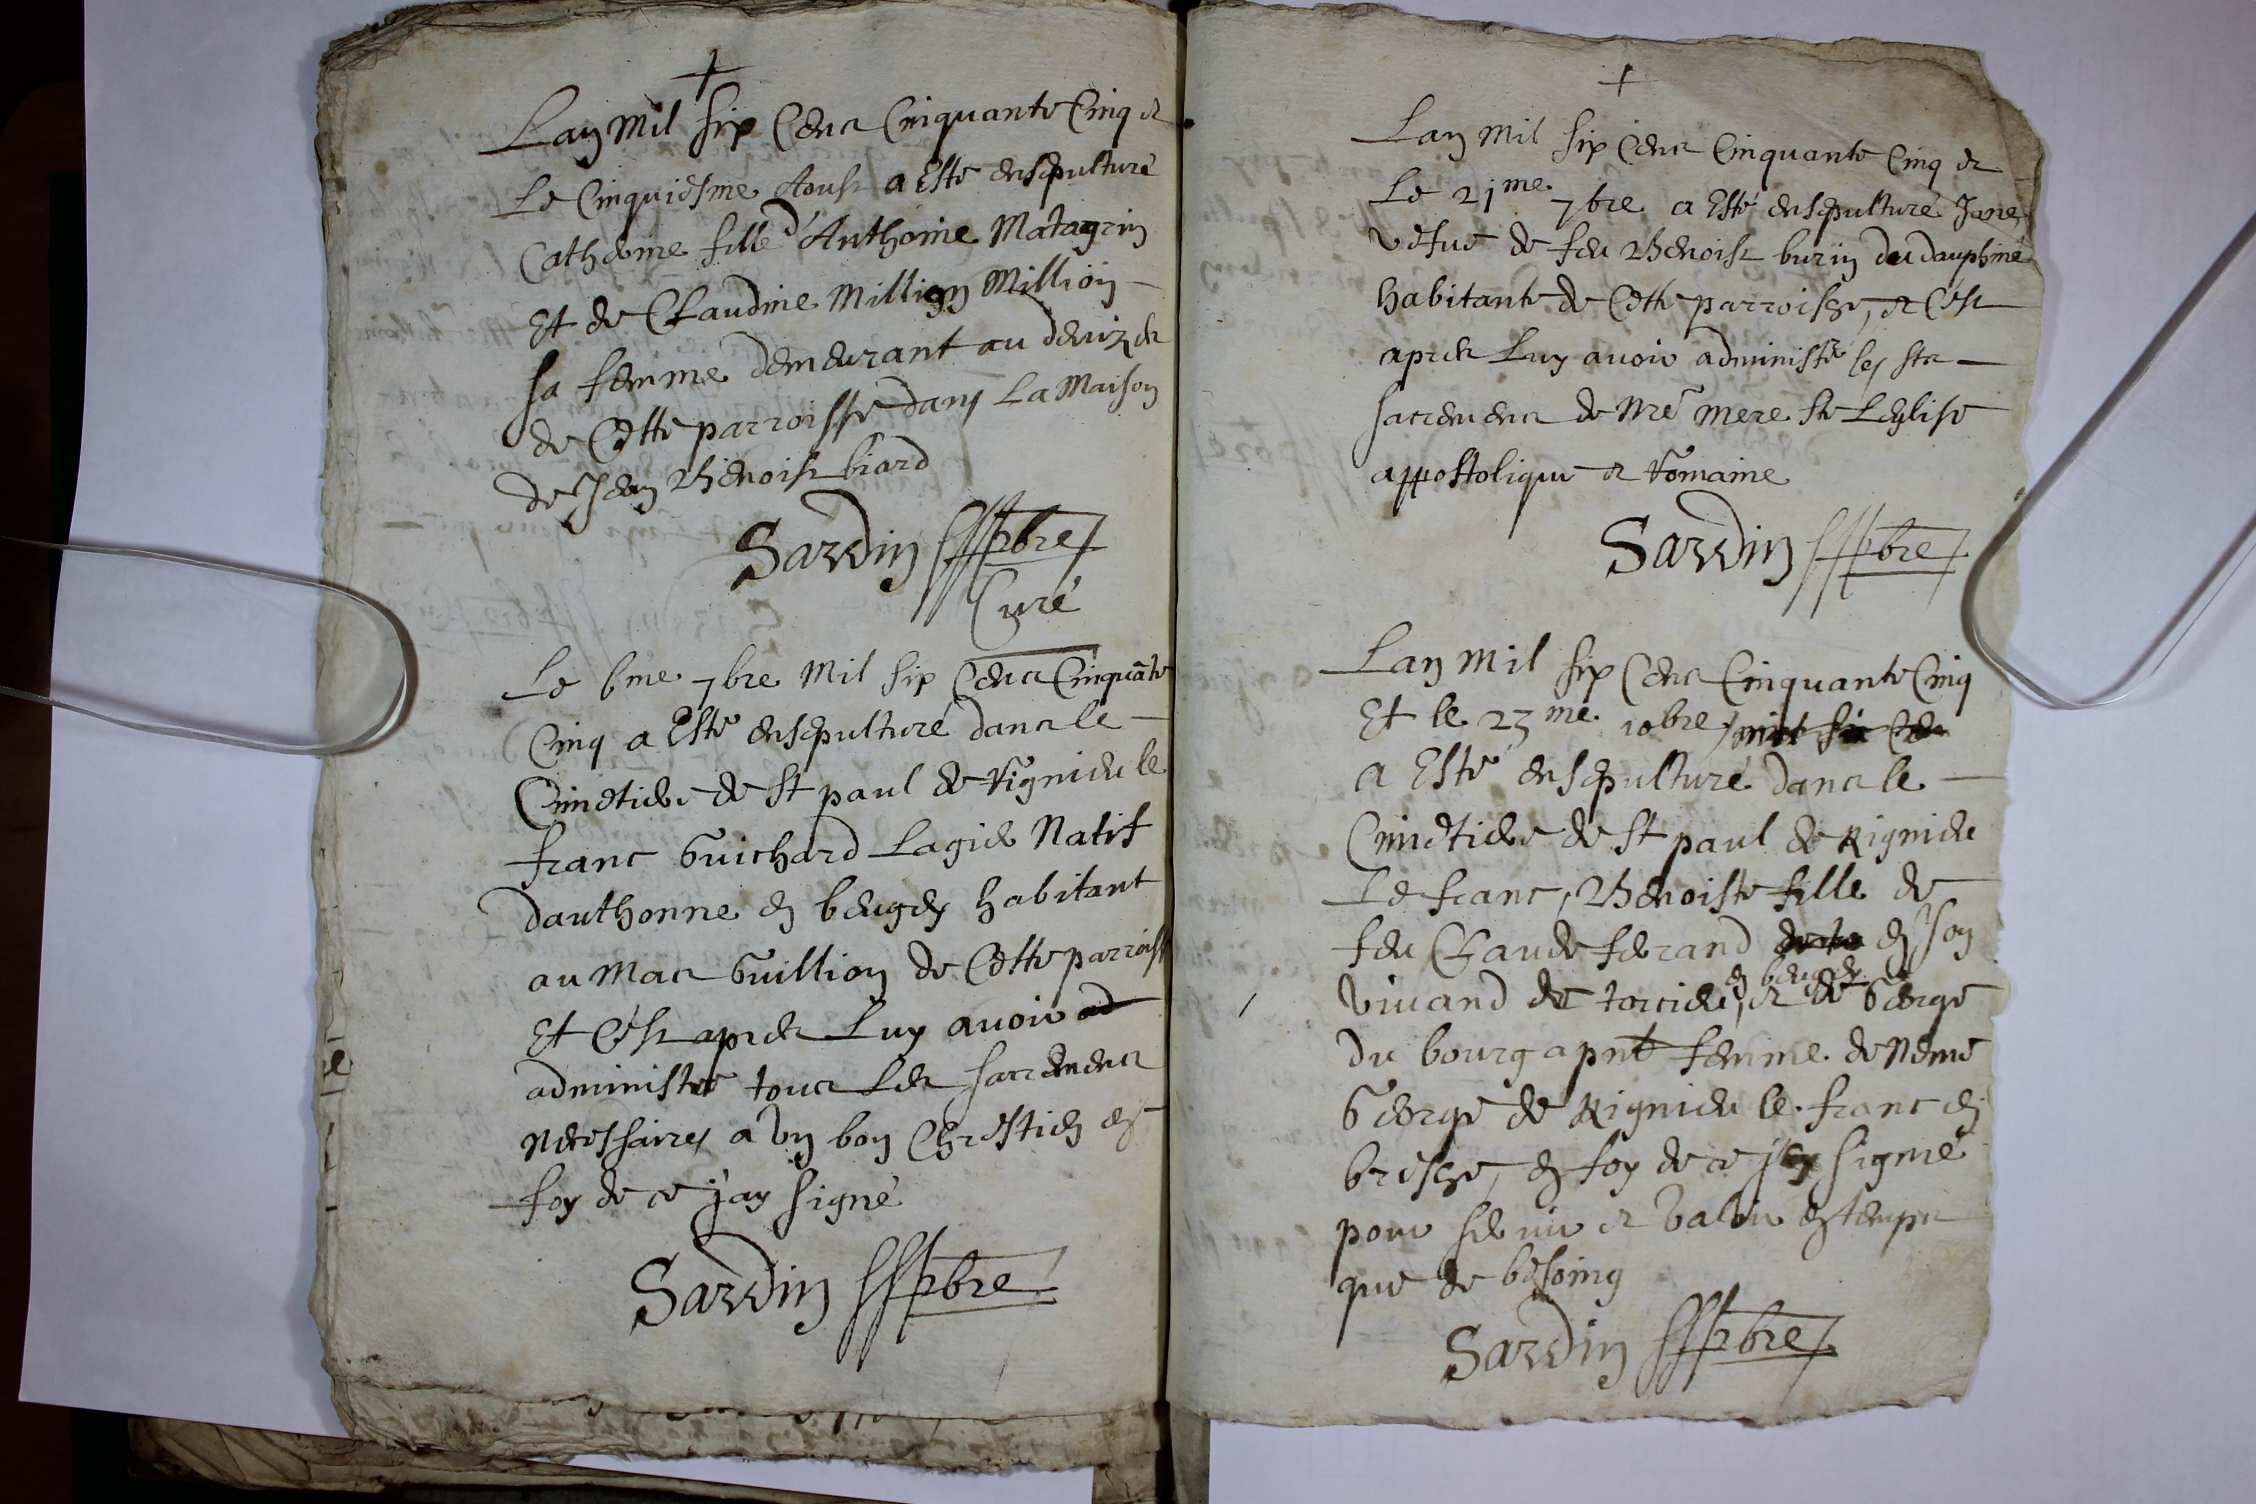 +
Lan Mil six Cens Cinquante Cinq et
Le Cinquiesme Aoust a Esté ensepulturé
Catherine fille d'Anthoine Matagrin
Et de Claudine Million Million
sa femme demeurant au
de Cette parroisse dans La Maison
de Jean Benoist biard
Sardin pbre
Curé
Le 6me 7bre Mil six Cens Cinquãte
Cinq a Esté ensepulturé dans le
Cimetiere de St paul de Rignieu le
franc Guichard Lagier Natif
dauthonne en beugey habitant
au Mas Guillion de Cette parroisse
Et C'est apres Luy avoir ad
administré tous Les sacremens
Necessaires a Un bon Chrestien en
foy de ce j'ay signé
Sardin pbre
+
Lan Mil six Cens Cinquante Cinq et
Le 21me 7bre a Esté ensepulturé Jane
vefve de feu Benoist burin du dauphiné
habitante de Cette parroisse, et C'est
apres Luy avoir administré les sts
sacremens de Nre mere ste Leglise
appostolique et Romaine
Sardin pbre
Lan Mil six Cens Cinquante Cinq
Et le 23me 10bre mil six Cen
a Esté ensepulturé dans le
Cimetiere de St paul de Rignieu
Le franc, Benoiste fille de
feu Claude ferand en son
en beugey
vivand de torcieu, et de George
du bourg apnt femme de Neme
George de Rignieu le franc en
bresse, en foy de ce j'ey signé
pour servir et valoir en temps
que de besoing
Sardin pbre